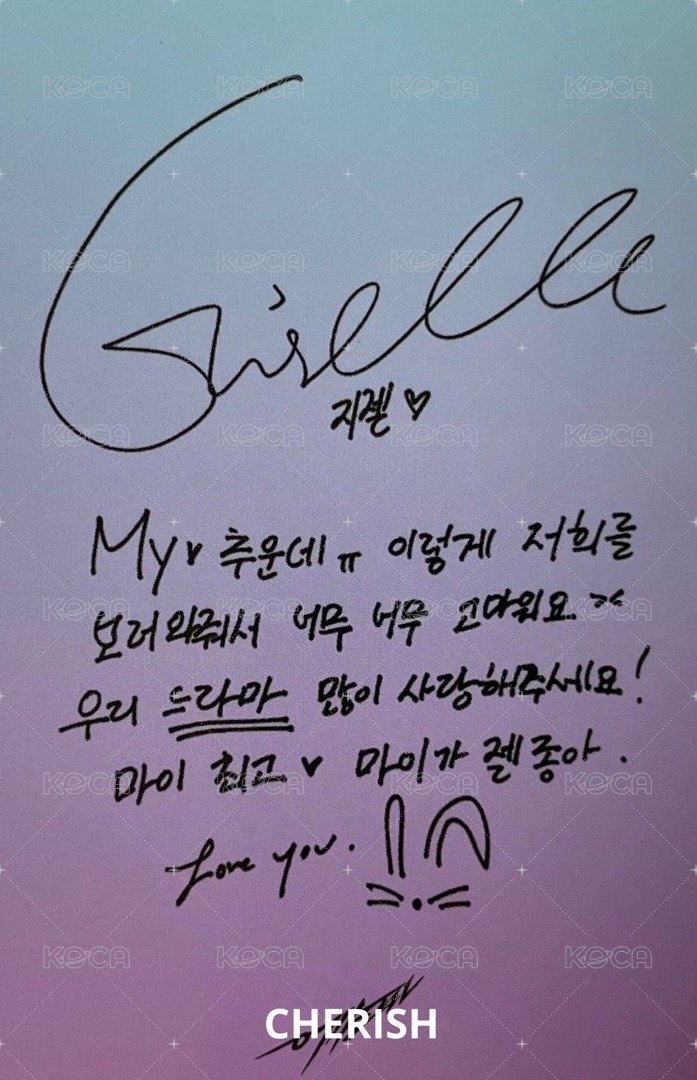 Giselle
지젤♡
My♥ 추운데ㅠ 이렇게 저희를
보러와줘서 너무 너무 고마워요.><
우리 드라마 많이 사랑해주세요!
마이 최고♥ 마이가 젤 좋아.
Love you.
CHERISH
KOCA